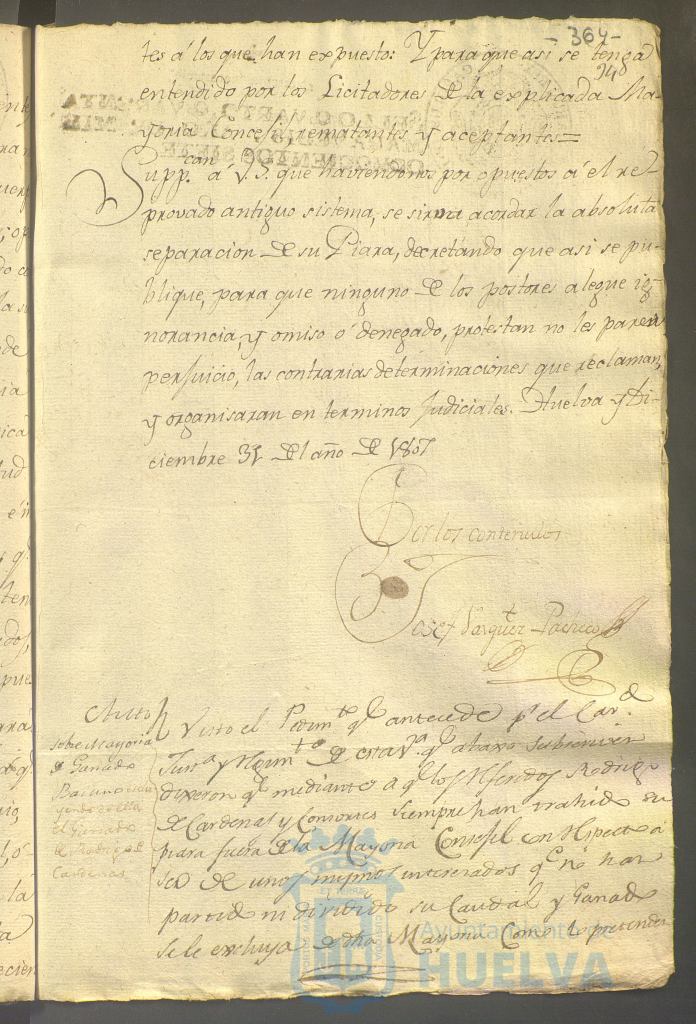 - 364 -
248
tes á los que han expuesto: Y para que asi se tenga
entendido por los Licitadores de la explicada Ma-
yoria Concejl, rematantes y aceptantes =
Supp.can á V.S. que haviendonos por opuestos á el re-
provado antiguo sistema, se sirva acordar la absoluta
separacion de su Piara, decretando que asi se pu-
blique, para que ninguno de los postores alegue ig-
norancia, y omiso ó denegado, protestan no les paren
perjuicio, las contrarias determinaciones que reclaman,
y organisaran en terminos Judiciales. Huelva y Di-
ciembre 31 del año de 1807
Por los contenidos
Josef Vazquez Pacheco
Auto
sobre Mayoria
de Ganado
Bacuno
el Ganado
de Rodrigo de
Cardenas
Visto el Pedim.to q.e antecede p.r el Cav.do
Just.a y Regim.to de esta V.a q.e abaxo subscriven
dixeron q.e mediante a q.e los referidos Rodrigo
de Cardenas y Consortes siempre han trahido su
piara fuera de la Mayoria Consejil con respecto a
ser de unos mismos interesados q.e no han
partido ni dividido su Caudal y Ganado
se le excluya de dha Mayoria Como lo pretenden
Ayuntamiento de
HUELVA